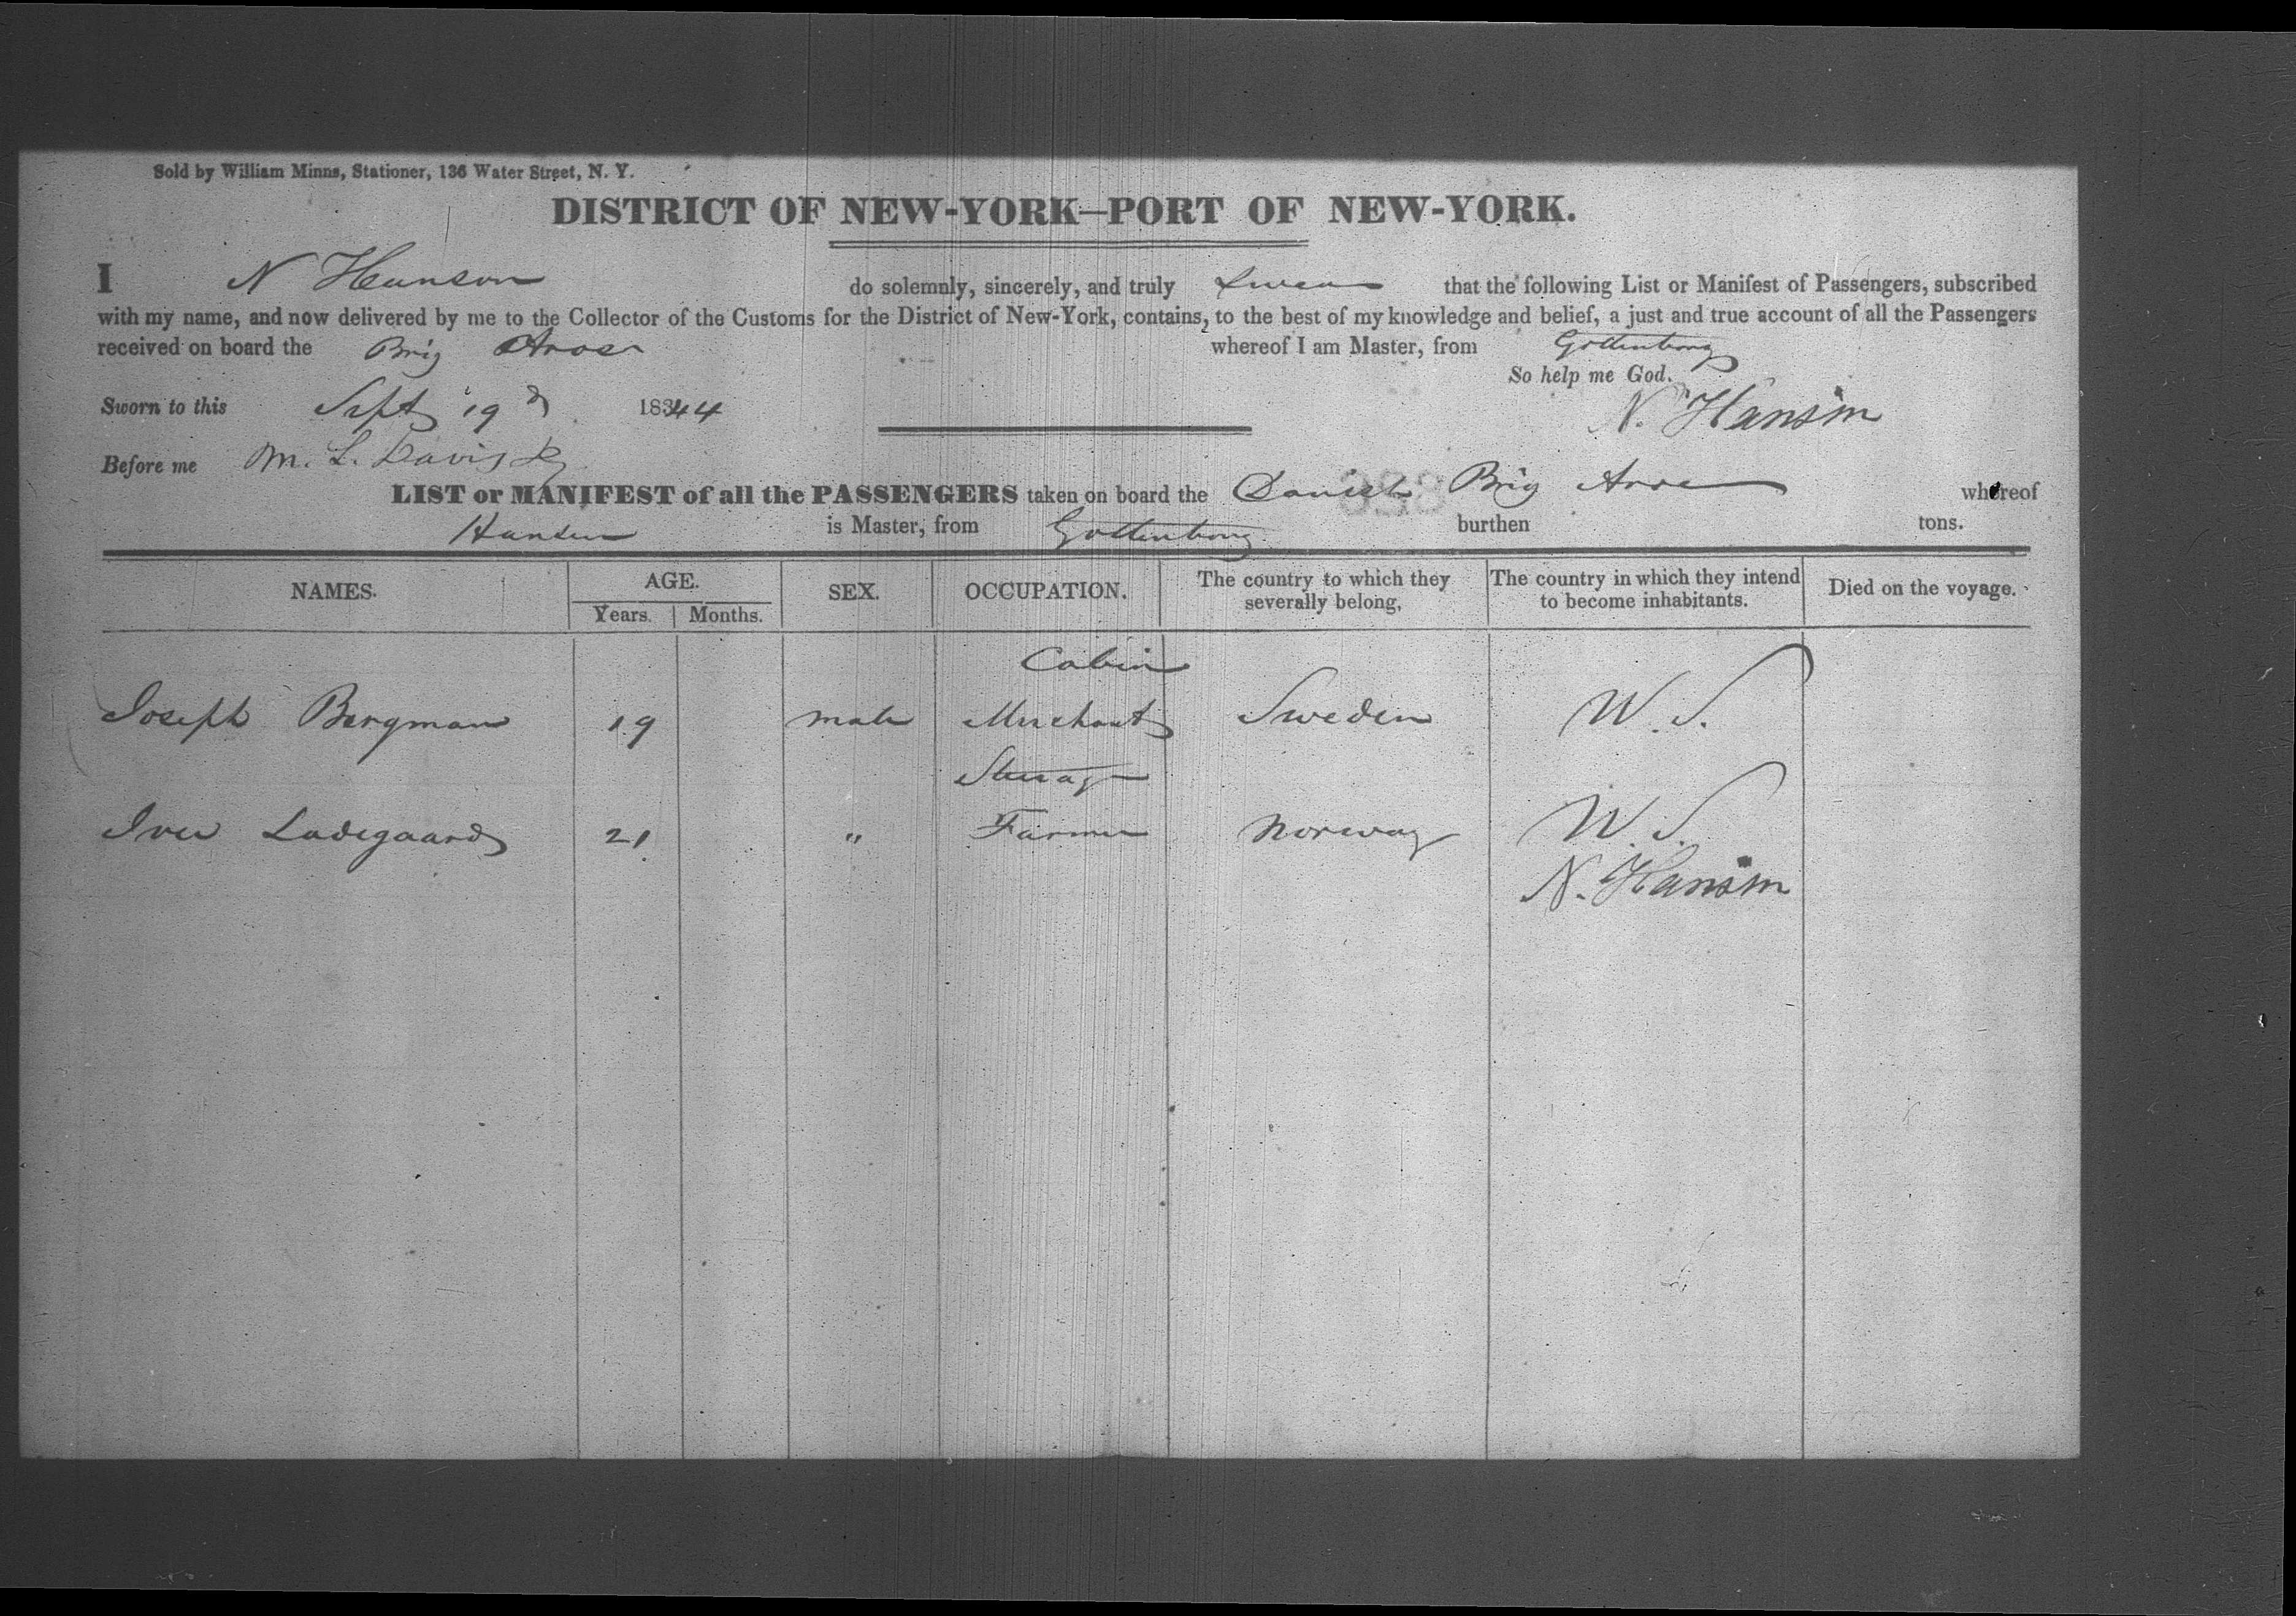 Sold by William Minns, Stationer, 136 Water Street, N. Y.
DISTRICT OF NEW-YORK—PORT OF NEW-YORK.
I N Hanson do solemnly, sincerely, and truly Swear that the following List or Manifest of Passengers, subscribed
with my name, and now delivered by me to the Collector of the Customs for the District of New-York, contains, to the best of my knowledge and belief, a just and true account of all the Passengers
received on board the Brig whereof I am Master, from Gottenburg
So help me God.
Sworn to this Sept 19 1844 N. Hansen
Before me M. L. Davis
LIST or MANIFEST of all the PASSENGERS taken on board the Danish Brig whereof
Hansen is Master, from Gottenburg burthen tons.
NAMES. AGE. SEX. OCCUPATION. The country to which they severally belong, The country in which they intend to become inhabitants. Died on the voyage.
Years. Months.
Cabin
Joseph Bergman 19 male Merchant Sweden U.S.
Steerage
Iver Ladegaard 21 " Farmer Norway U.S.
N. Hansen